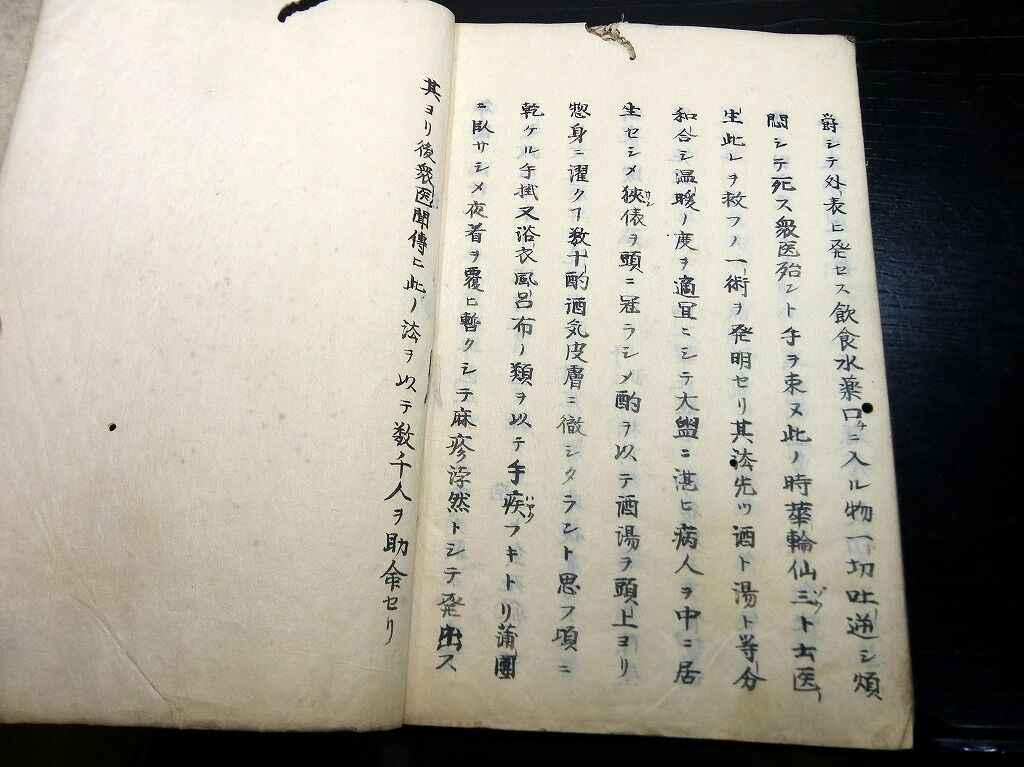 欝シテ外表ヒ発セス飲食水薬口ニ入ル物一切吐逆シ煩
悶シテ死ス衆医殆ント手ヲ束ヌ此ノ時華輪仙三ト士医
生此レヲ救フノ一術ヲ発明セリ其法先ツ酒ト湯ト等分
和合シ温暖ノ度ヲ適宜ニシテ大盥ニ湛ヒ病人ヲ中ニ居
坐セシメ狹俵ヲ頭ニ冠ラシメ酌ヲ以テ酒湯ヲ頭上ヨリ
惣身ニ濯ク丁数十酌酒気皮膚ニ徹シタラント思フ頃ニ
乾ケル手掛又浴衣風呂布ノ類ヲ以テ手疾フキトリ蒲團
ニ臥サシメ夜着ヲ覆ヒ暫クシテ麻疹浡然トシテ発出ス
其ヨリ後衆医聞傳ヒ此ノ法ヲ以テ数千人ヲ助命セリ